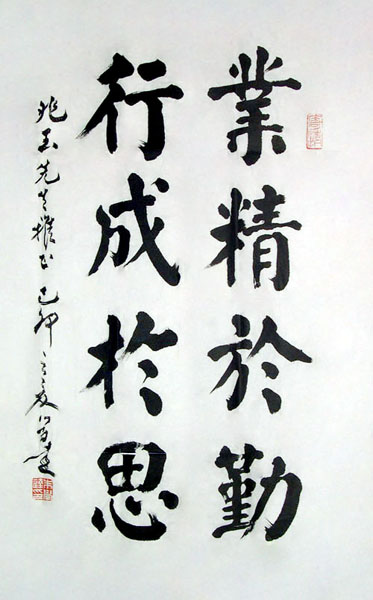 業精於勤
行成於思
兆玉先生雅正 己卯之夏